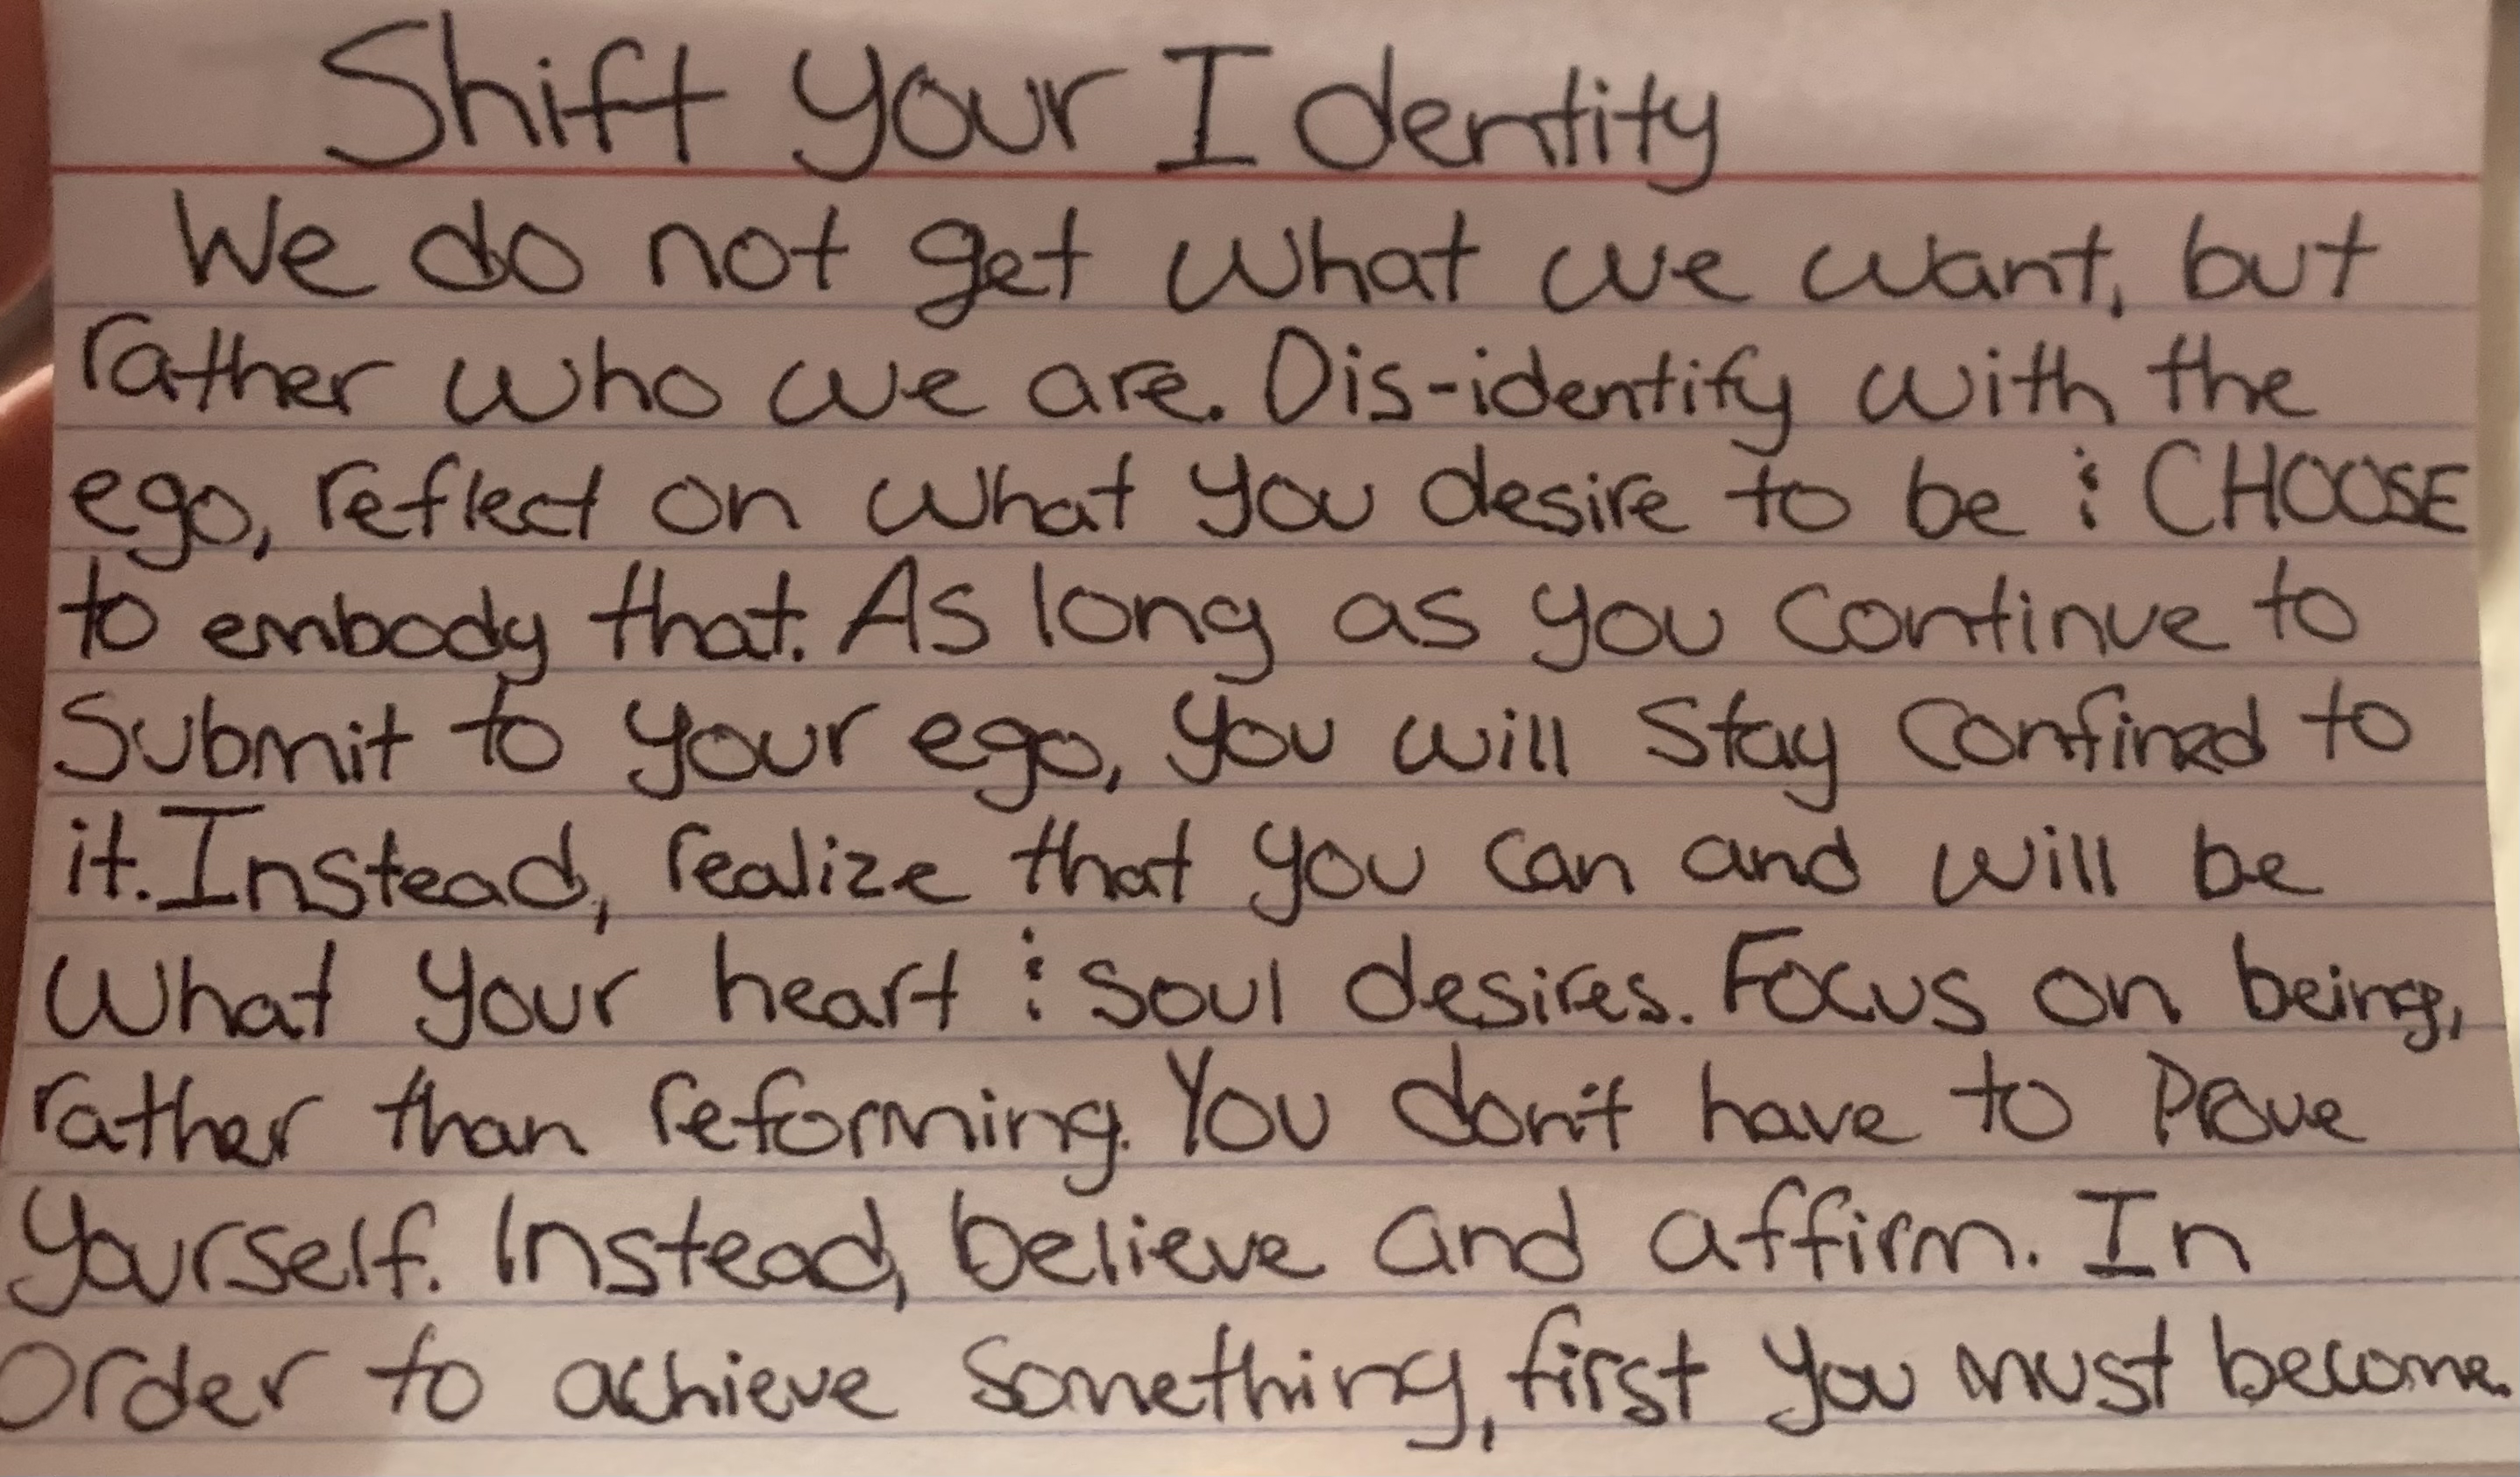 Shift Your Identity
We do not get what we want, but
rather who we are. Dis-identify with the
ego, reflect on what you desire to be & CHOOSE
to embody that. As long as you continue to
Submit to your ego, you will stay confined to
it. Instead, realize that you can and will be
what your heart & soul desires. Focus on being,
rather than reforming. You don't have to prove
yourself. Instead, believe and affirm. In
order to achieve something, first you must become.